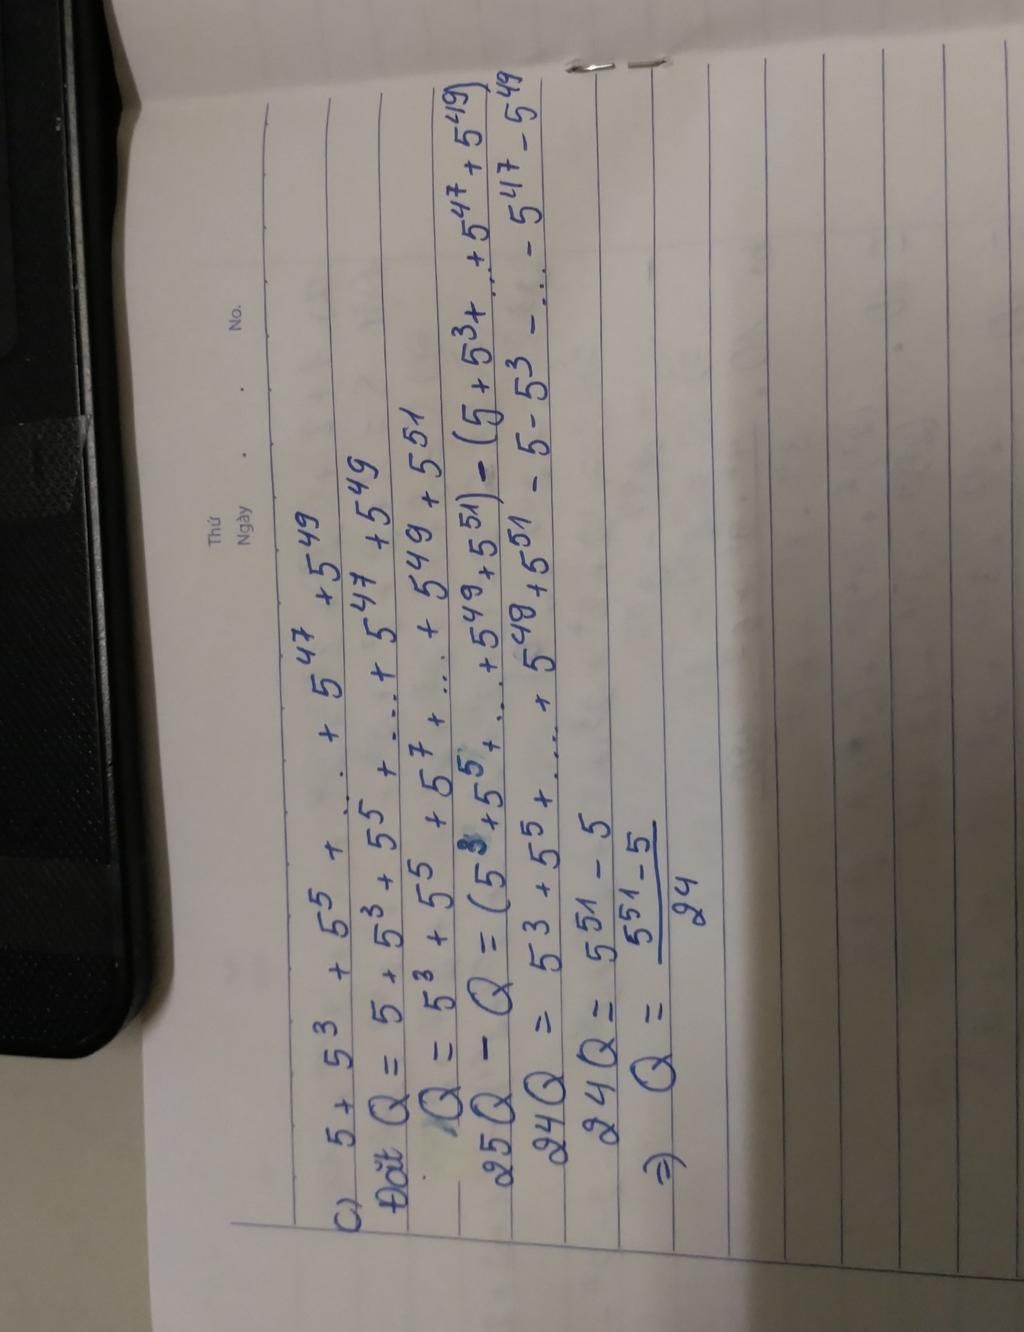 Thứ
Ngày . . No.
c) 5 + 5³ + 5⁵ + ... + 5⁴⁷ + 5⁴⁹
Đặt Q = 5 + 5³ + 5⁵ + .... + 5⁴⁷ + 5⁴⁹
Q = 5³ + 5⁵ + 5⁷ + ... + 5⁴⁹ + 5⁵¹
25Q - Q = (5³ + 5⁵ + ... + 5⁴⁹ + 5⁵¹) - (5 + 5³ + ... + 5⁴⁷ + 5⁴⁹)
24Q = 5³ + 5⁵ + .... + 5⁴⁹ + 5⁵¹ - 5 - 5³ - ... - 5⁴⁷ - 5⁴⁹
24Q = 5⁵¹ - 5
=> Q = 5⁵¹ - 5
24